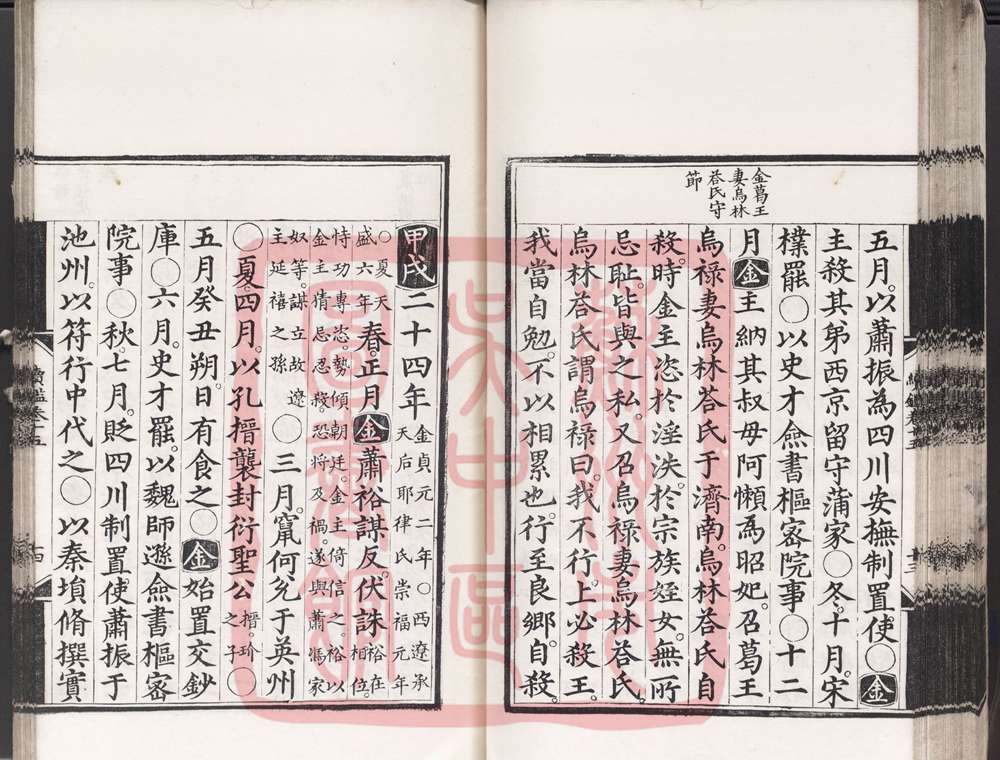 金葛王
妻烏林
荅氏守
節
五月。以蕭振為四川安撫制置使〇金
主殺其弟西京留守蒲家〇冬。十月。宋
樸罷〇以史才僉書樞密院事〇十二
月金主納其叔母阿懶為昭妃。召葛王
烏祿妻烏林荅氏于濟南。烏林荅氏自
殺。時金主恣於淫泆。於宗族姪女。無所
忌恥。皆與之私。又召烏祿妻烏林荅氏。
烏林荅氏謂烏祿曰。我不行。上必殺王。
我當自勉。不以相累也。行至良鄉。自殺。
甲戌二十四年金貞元二年〇西遼承
天后耶律氏崇福元年
〇夏天
盛六年春。正月金蕭裕謀反。伏誅裕在
相位。
恃功專恣。勢傾朝廷。金主倚信之。裕以
金主猜忌忍殺。恐將及禍。遂與蕭馮家
奴等。謀立故遼
主延禧之孫〇三月。竄何兊于英州
〇夏。四月。以孔搢襲封衍聖公搢。玠
之子〇
五月癸丑朔。日有食之〇金始置交鈔
庫〇六月。史才罷。以魏師遜僉書樞密
院事〇秋。七月。貶四川制置使蕭振于
池州。以符行中代之〇以秦塤脩撰實